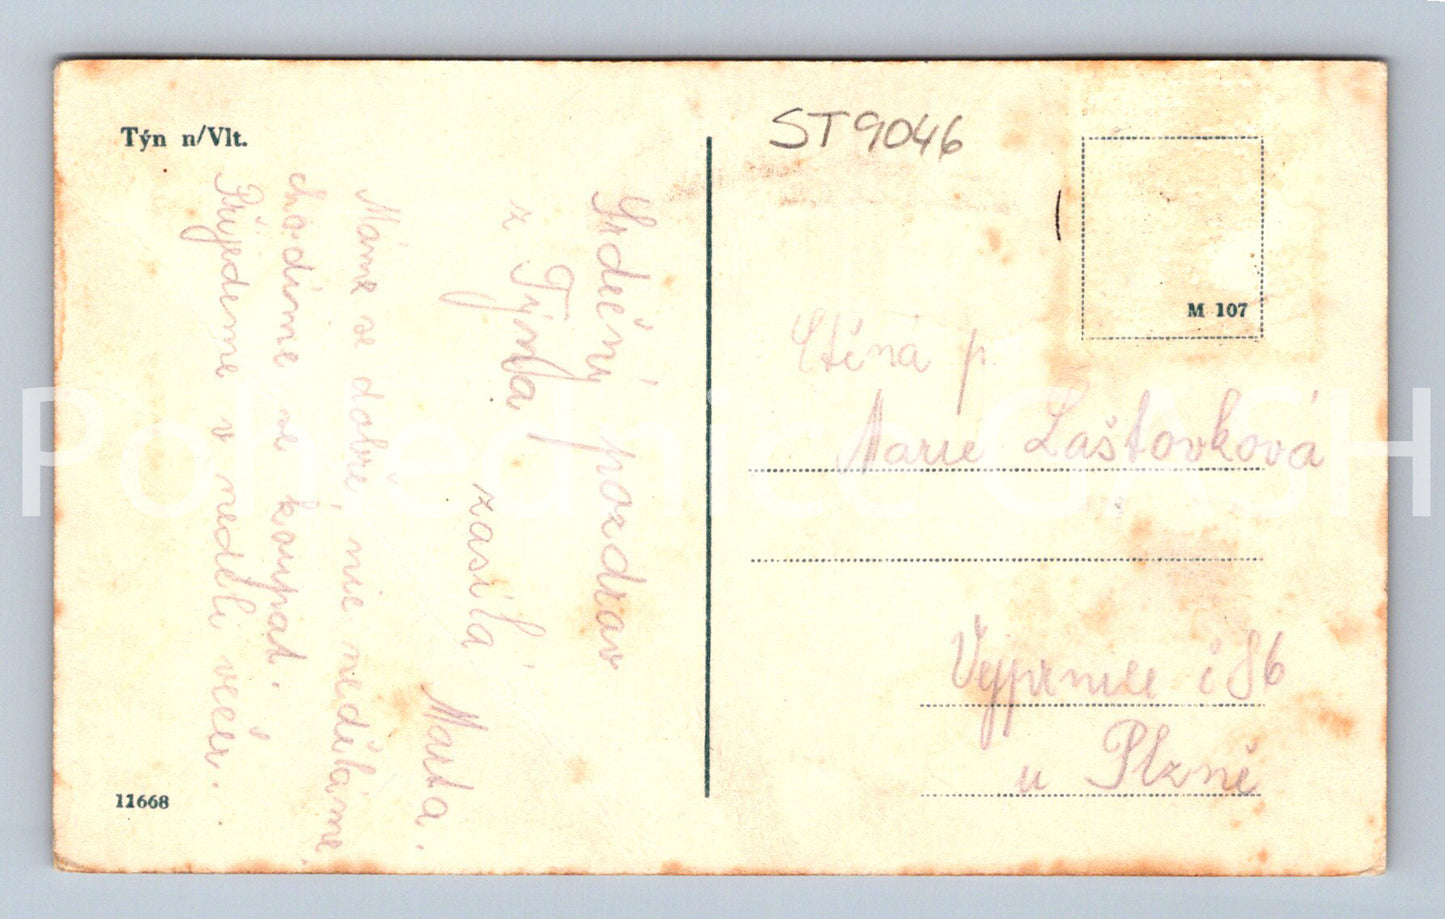 Týn n/Vlt.
ST9046
Srdečný pozdrav
z Týna
zasílá
Marta.
Máme se dobře, nic neděláme,
chodíme se koupat.
Přijedeme v neděli večer.
11668
M 107
Ctěná p.
Marie Laštovková
Vejprnice č 86
u Plzně
Pohlednice GASH